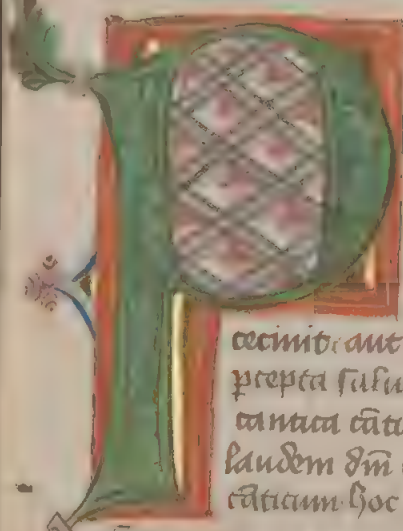 P
cecinit aut
p̄cepta salu
cantica cāti
laudem dm̄
cāticum hoc